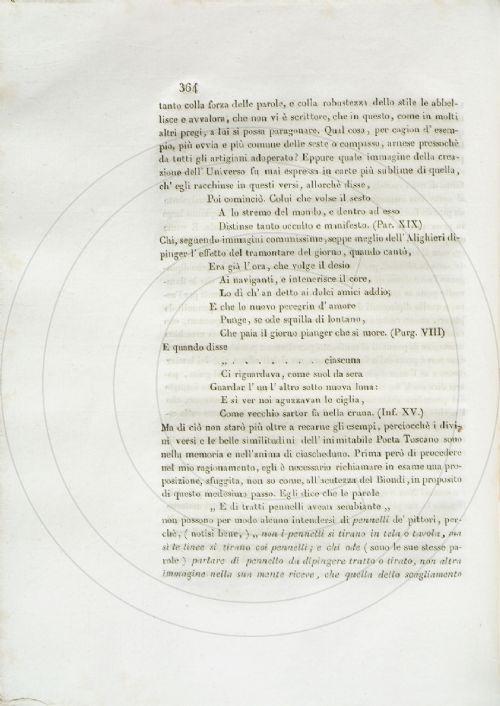 364
tanto colla forza delle parole, e colla robustezza dello stile le abbel-
lisce e avvalora, che non vi è scrittore, che in questo, come in molti
altri pregi, a lui si possa paragonare. Qual cosa, per cagion d' esem-
pio, più ovvia e più comune delle seste o compasso, arnese pressochè
da tutti gli artigiani adoperato? Eppure quale immagine della crea-
zione dell' Universo fu mai espressa in carte più sublime di quella,
ch' egli racchiuse in questi versi, allorchè disse,
Poi cominciò. Colui che volse il sesto
A lo stremo del mondo, e dentro ad esso
Distinse tanto occulto e manifesto. (Par. XIX)
Chi, seguendo immagini comunissime, seppe meglio dell' Alighieri di-
pinger l' effetto del tramontare del giorno, quando cantò,
Era già l' ora, che volge il desio
Ai naviganti, e intenerisce il core,
Lo dì ch' an detto ai dolci amici addio;
E che lo nuovo peregrin d' amore
Punge, se ode squilla di lontano,
Che paia il giorno pianger che si more. (Purg. VIII)
E quando disse
„ . . . . . . . ciascuna
Ci riguardava, come suol da sera
Guardar l' un l' altro sotto nuova luna:
E sì ver noi aguzzavan le ciglia,
Come vecchio sartor fa nella cruna. (Inf. XV.)
Ma di ciò non starò più oltre a recarne gli esempi, perciocchè i divi-
ni versi e le belle similitudini dell' inimitabile Poeta Toscano sono
nella memoria e nell' anima di ciascheduno. Prima però di procedere
nel mio ragionamento, egli è necessario richiamare in esame una pro-
posizione, sfuggita, non so come, all' acutezza del Biondi, in proposito
di questo medesimo passo. Egli dice che le parole
„ E di tratti pennelli avean sembiante „
non possono per modo alcuno intendersi di pennelli de' pittori, per-
chè, ( notisi bene, ) „ non i pennelli si tirano in tela o tavola, ma
sì le linee si tirano coi pennelli; e chi ode ( sono le sue stesse pa-
role ) parlare di pennello da dipingere tratto o tirato, non altra
immagine nella sua mente riceve, che quella dello scagliamento